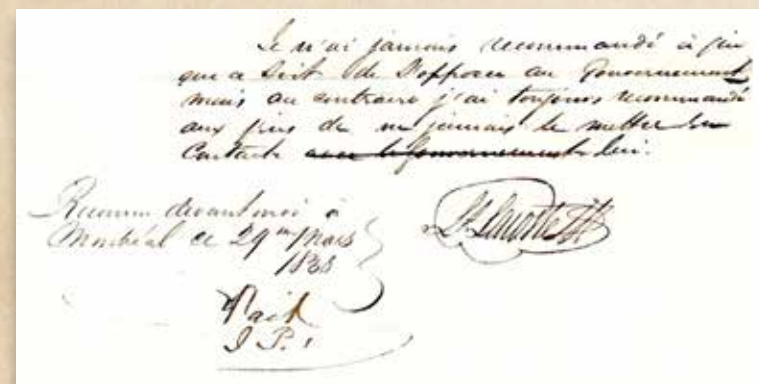 Je n'ai jamais recommandé à qui
que ce soit de s'opposer au Gouvernement
mais au contraire j'ai toujours recommandé
aux gens de ne jamais se mettre en
Contacte avec le Gouvernement lui.
Reconnu devant moi à
Montréal ce 29me Mars
1838
J. P.